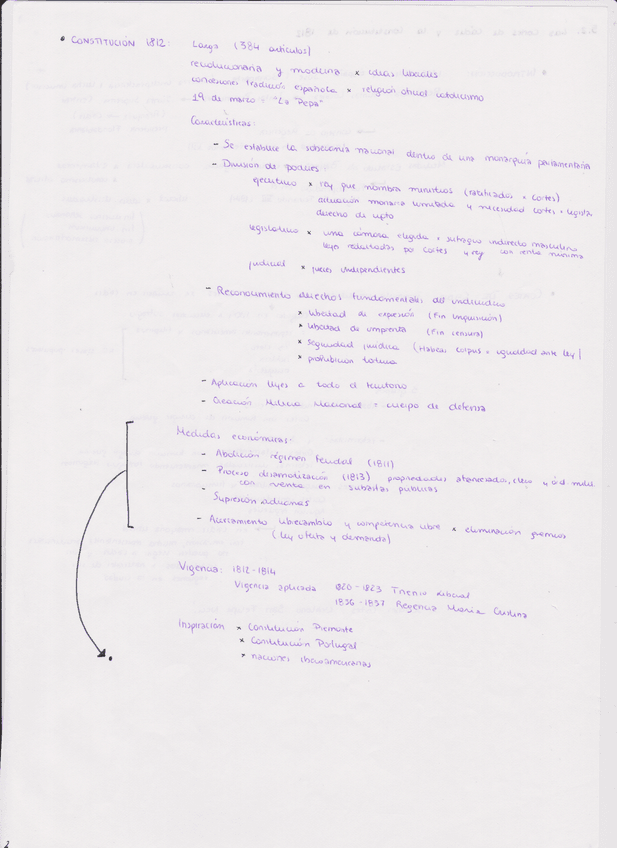 • CONSTITUCIÓN 1812: Larga (384 artículos)
revolucionaria y moderna x ideas liberales
concesiones tradición española x religión oficial catolicismo
19 de marzo - "La Pepa"
Características:
- Se establece la soberanía nacional dentro de una monarquía parlamentaria
- División de poderes
ejecutivo x rey que nombra ministros (ratificados x Cortes)
actuación monarca limitada y necesidad cortes
derecho de veto
legislativo x una cámara elegida sufragio indirecto masculino
leyes redactadas por cortes y rey con renta mínima
judicial x jueces independientes
- Reconocimiento derechos fundamentales del individuo
x libertad de expresión (Fin inquisición)
x libertad de imprenta (Fin censura)
x seguridad jurídica (Habeas corpus = igualdad ante ley)
x prohibición tortura
- Aplicación leyes a todo el territorio
- Creación Milicia Nacional = cuerpo de defensa
Medidas económicas:
- Abolición régimen feudal (1811)
- Proceso desamortización (1813) propiedades afrancesados, clero y
con venta en subastas públicas
- Supresión aduanas
- Acercamiento librecambio y competencia libre x eliminación gremios
(ley oferta y demanda)
Vigencia: 1812-1814
Vigencia aplicada 1820-1823 Trienio Liberal
1836-1837 Regencia María Cristina
Inspiración x Constitución Piemonte
x Constitución Portugal
x naciones iberoamericanas
2